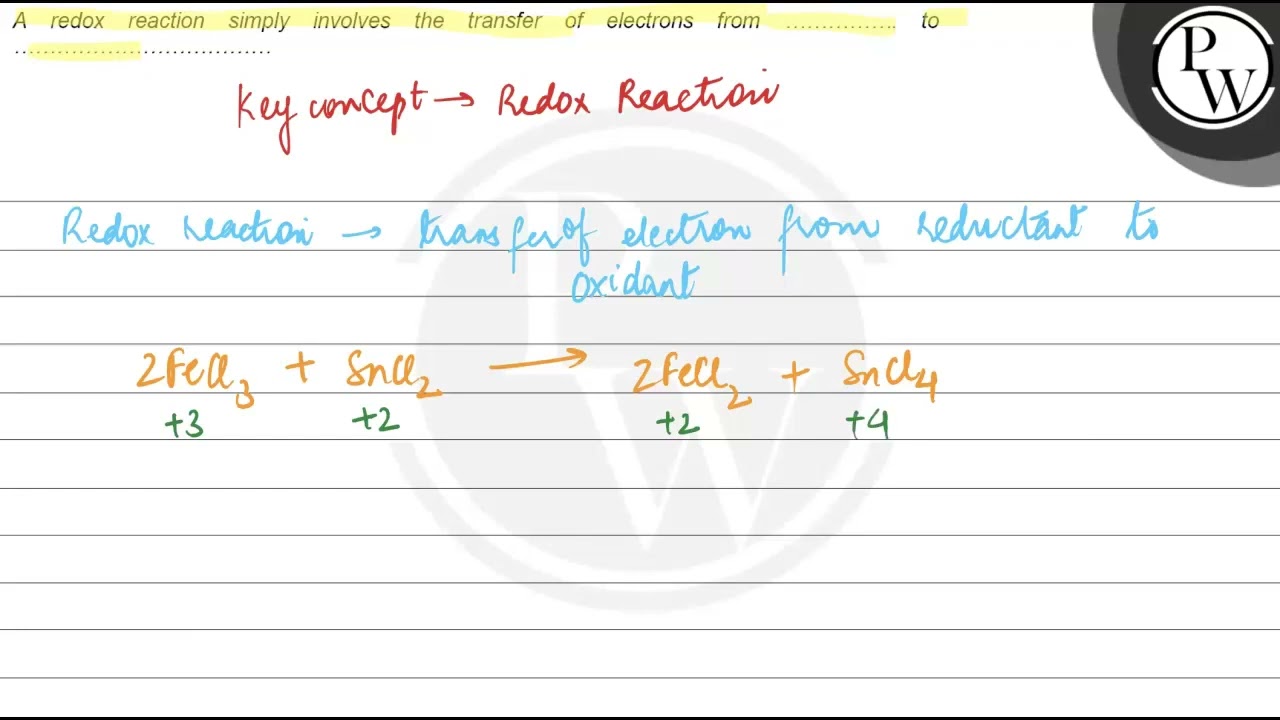 A redox reaction simply involves the transfer of electrons from ……………. to
………………………………
P
W
Key concept → Redox Reaction
Redox reaction → transfer of electron from reductant to
oxidant
2FeCl3 + SnCl2 ⟶ 2FeCl2 + SnCl4
+3 +2 +2 +4
PW